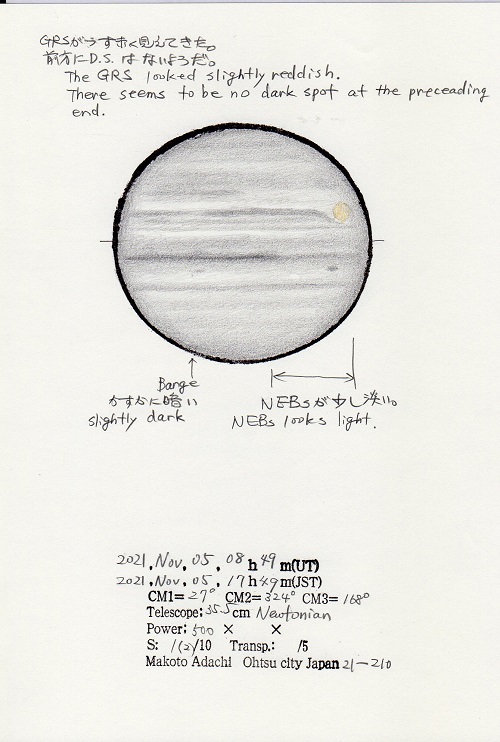 GRSがうす赤く見えてきた。
前方にD.S.はないようだ。
The GRS looked slightly reddish.
There seems to be no dark spot at the preceading
end.
Barge
かすかに暗い
slightly dark
NEBsが少し淡い。
NEBs looks light.
2021, Nov, 05, 08h 49m(UT)
2021, Nov, 05, 17h 49m(JST)
CM1= 27° CM2= 324° CM3= 168°
Telescope: 35.5cm Newtonian
Power: 500 × ×
S: 1(2)/10 Transp.: /5
Makoto Adachi Ohtsu city Japan 21-210